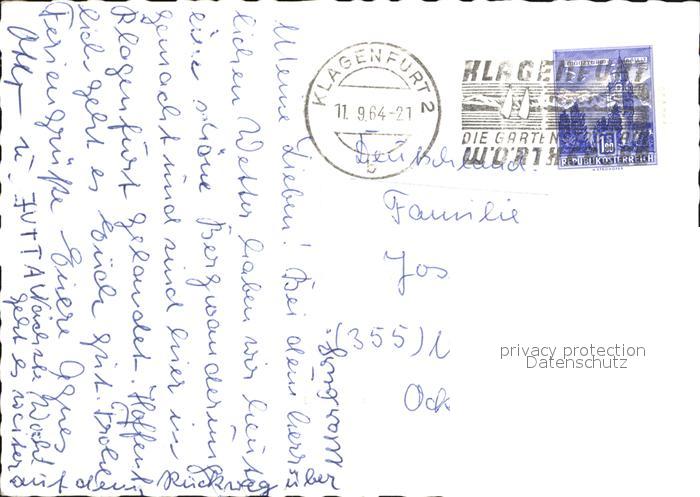 Meine Lieben! Bei dem herr-
lichen Wetter haben wir heute
eine schöne Bergwanderung
gemacht und sind hier in
Klagenfurt gelandet. Hoffent-
lich geht es Euch gut. Frohe
Feriengrüße Eure Agnes
u. JUTTA Nächste Woche
geht es weiter
auf dem Rückweg über
KLAGENFURT 2
11. 9.64-21
b
KLAGENFURT
DIE GARTENSTADT
WÖRTHERSEE
REPUBLIK ÖSTERREICH
Deutschland.
Familie
Jos
(355) M
Ock
privacy protection
Datenschutz